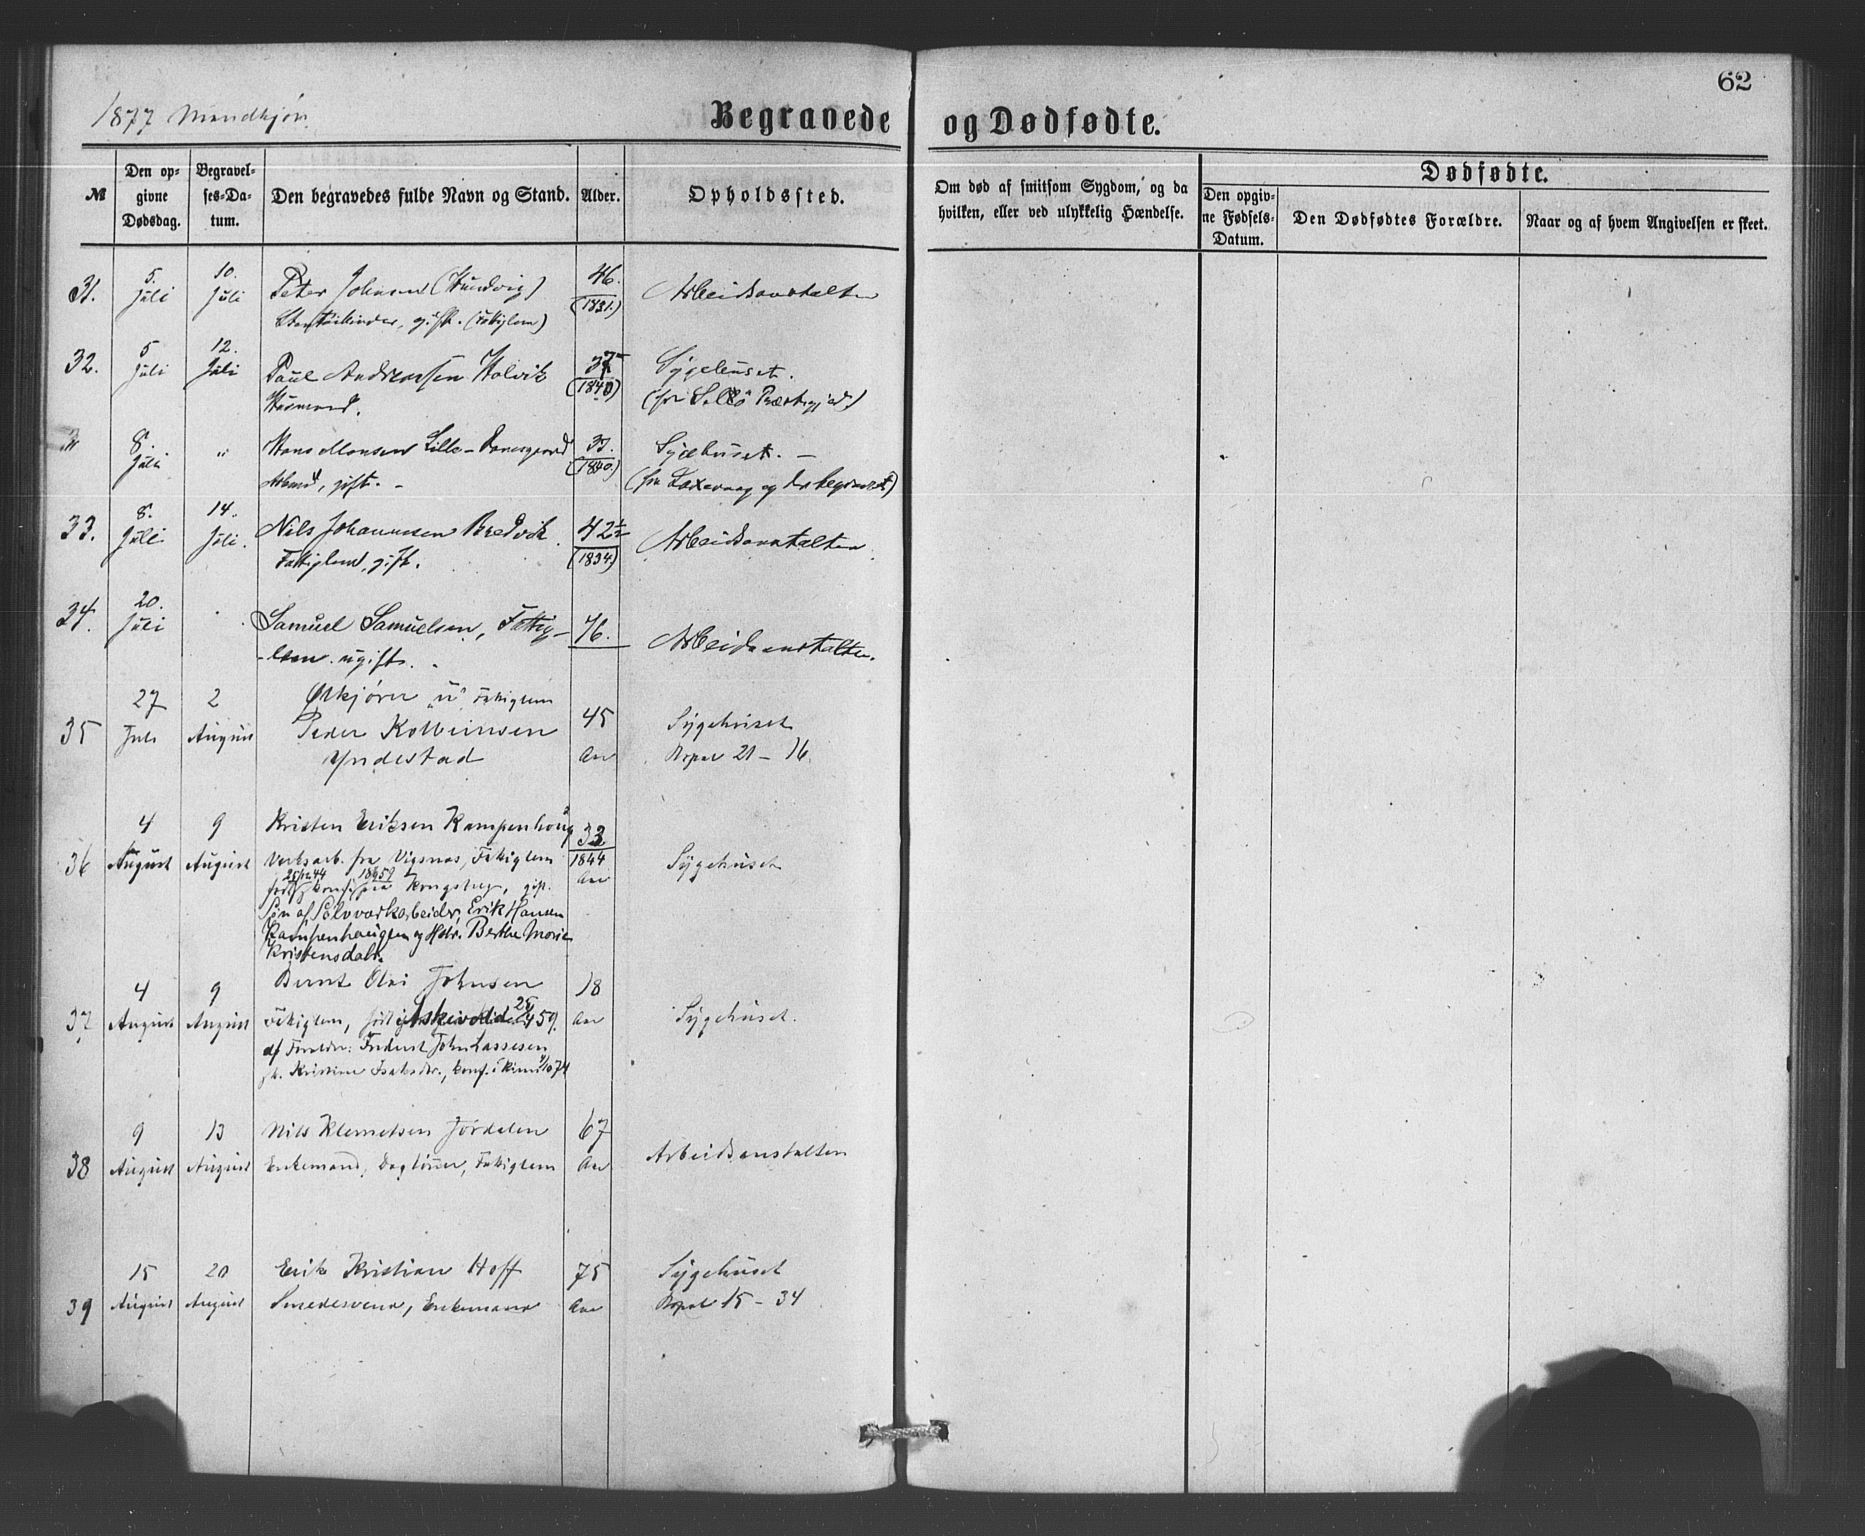 62
1877 Mandkjøn
Begravede og Dødfødte.
№
Den opgivne Dødsdag.
Begravelses-Datum.
Den begravedes fulde Navn og Stand.
Alder.
Opholdssted.
Om død af smitsom Sygdom, og da hvilken, eller ved ulykkelig Hændelse.
Dødfødte.
Den opgivne Fødsels-Datum.
Den Dødfødtes Forældre.
Naar og af hvem Angivelsen er skeet.
31. 5. Juli 10. Juli Peter Johnsen (Hundvig) 46. (1831.) Arbeidsanstalten
gift. (Fattiglem)
32. 5 Juli 12. Juli Paul Andreassen Halvik 37 (1840) Sygehuset.
Husmand. (fra Præstegjeld)
" 8. Juli " Hans Monsen Lille-Damsgaard 37. (1840.) Sygehuset. –
gift. – (fra Laxevaag og der begravet)
33. 8. Juli 14. Juli. Nils Johannessen Bredvik 42½ (1834.) Arbeidsanstalten
Fattiglem, gift.
34. 20. Juli Samuel Samuelsen, Fattig- 76. Arbeidsanstalten.
-lem. ugift.
35 27 Juli 2 August Fattiglem
Peder Kolbeinsen 45 Aar Sygehuset
Yndestad 21 – 16.
36 4 August 9 August Kristen Eriksen Kampenhoug 33 1844 Aar Sygehuset
Verksarb. fra Vigsnæs, Fattiglem
Kongsberg, gift.
Søn af Sølvværksarbeider, Erik Hansen
Kampenhaugen og Hstr. Berthe Marie
Kristensdatr.
37 4 August 9 August Bernt Olai Johnsen 18 Aar Sygehuset.
Fattiglem, født i Askevold 25/4 59.
af Forældre: John Lassesen
Kristine Isaksdr., konf. i Kinn
38 9 August 13 August Nils Klemetsen Jordalen 67 Aar Arbeidsanstalten
Enkemand, Dagløner, Fattiglem
39 15 August 20 August Erik Kristian Hoff 75 Aar Sygehuset
Smedesvend, Enkemand 15 – 34